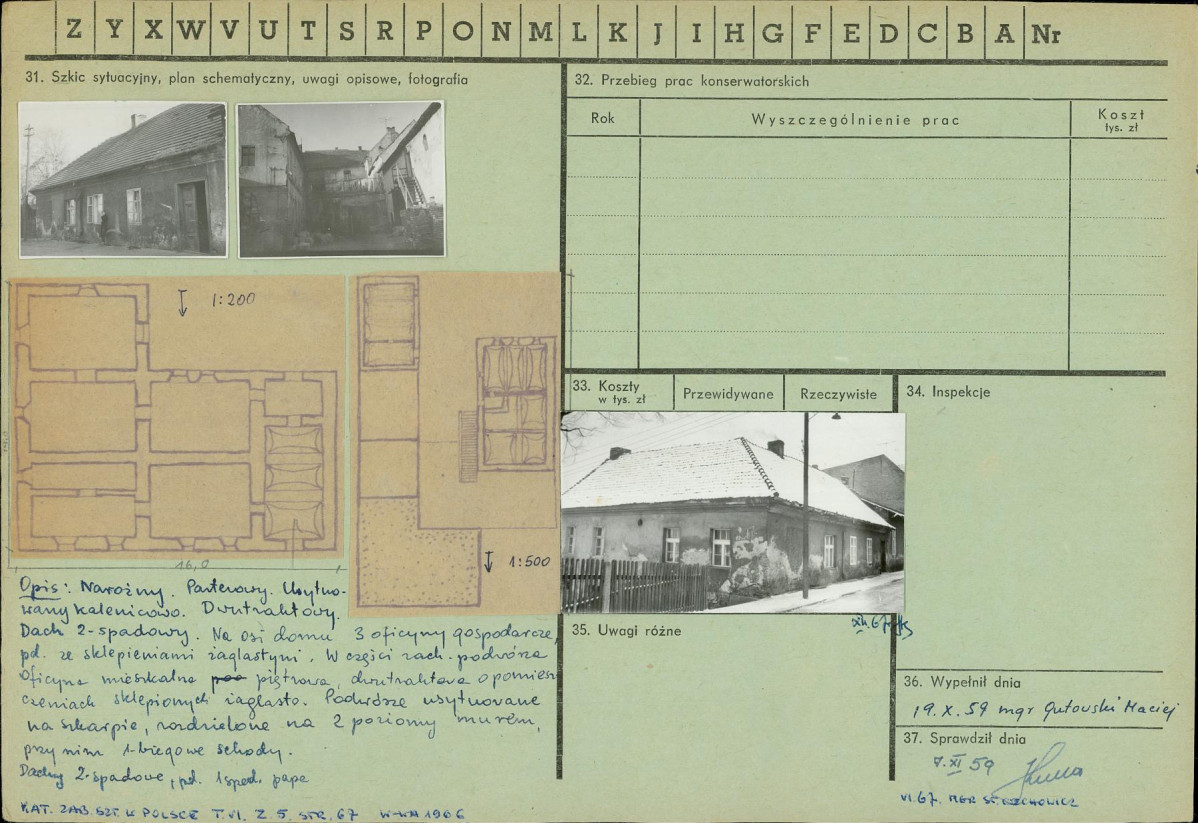 Z Y X W V U T S R P O N M L K J I H G F E D C B A Nr
31. Szkic sytuacyjny, plan schematyczny, uwagi opisowe, fotografia
1:200
16,0
1:500
Opis: Narożny. Parterowy. Usytuo-
wany kalenicowo. Dwutraktowy.
Dach 2-spadowy. Na osi domu 3 oficyny gospodarcze,
pd. ze sklepieniami żaglastymi. W części zach. podwórza
oficyna mieszkalna piętrowa, dwutraktowa o pomiesz
czeniach sklepionych żaglasto. Podwórze usytuowane
na skarpie, rozdzielone na 2 poziomy murem,
przy nim 1-biegowe schody.
Dachy 2-spadowe, pd. 1spad. papa
KAT. ZAB. SZT. W POLSCE T. VI. Z 5. STR. 67 W-WA 1966
32. Przebieg prac konserwatorskich
Rok
Wyszczególnienie prac
Koszt
tys. zł
33. Koszty
w tys. zł
Przewidywane
Rzeczywiste
34. Inspekcje
35. Uwagi różne
XII. 67
36. Wypełnił dnia
19. X. 59 mgr Gutowski Maciej
37. Sprawdził dnia
7. XI 59
VI. 67. MGR ST.